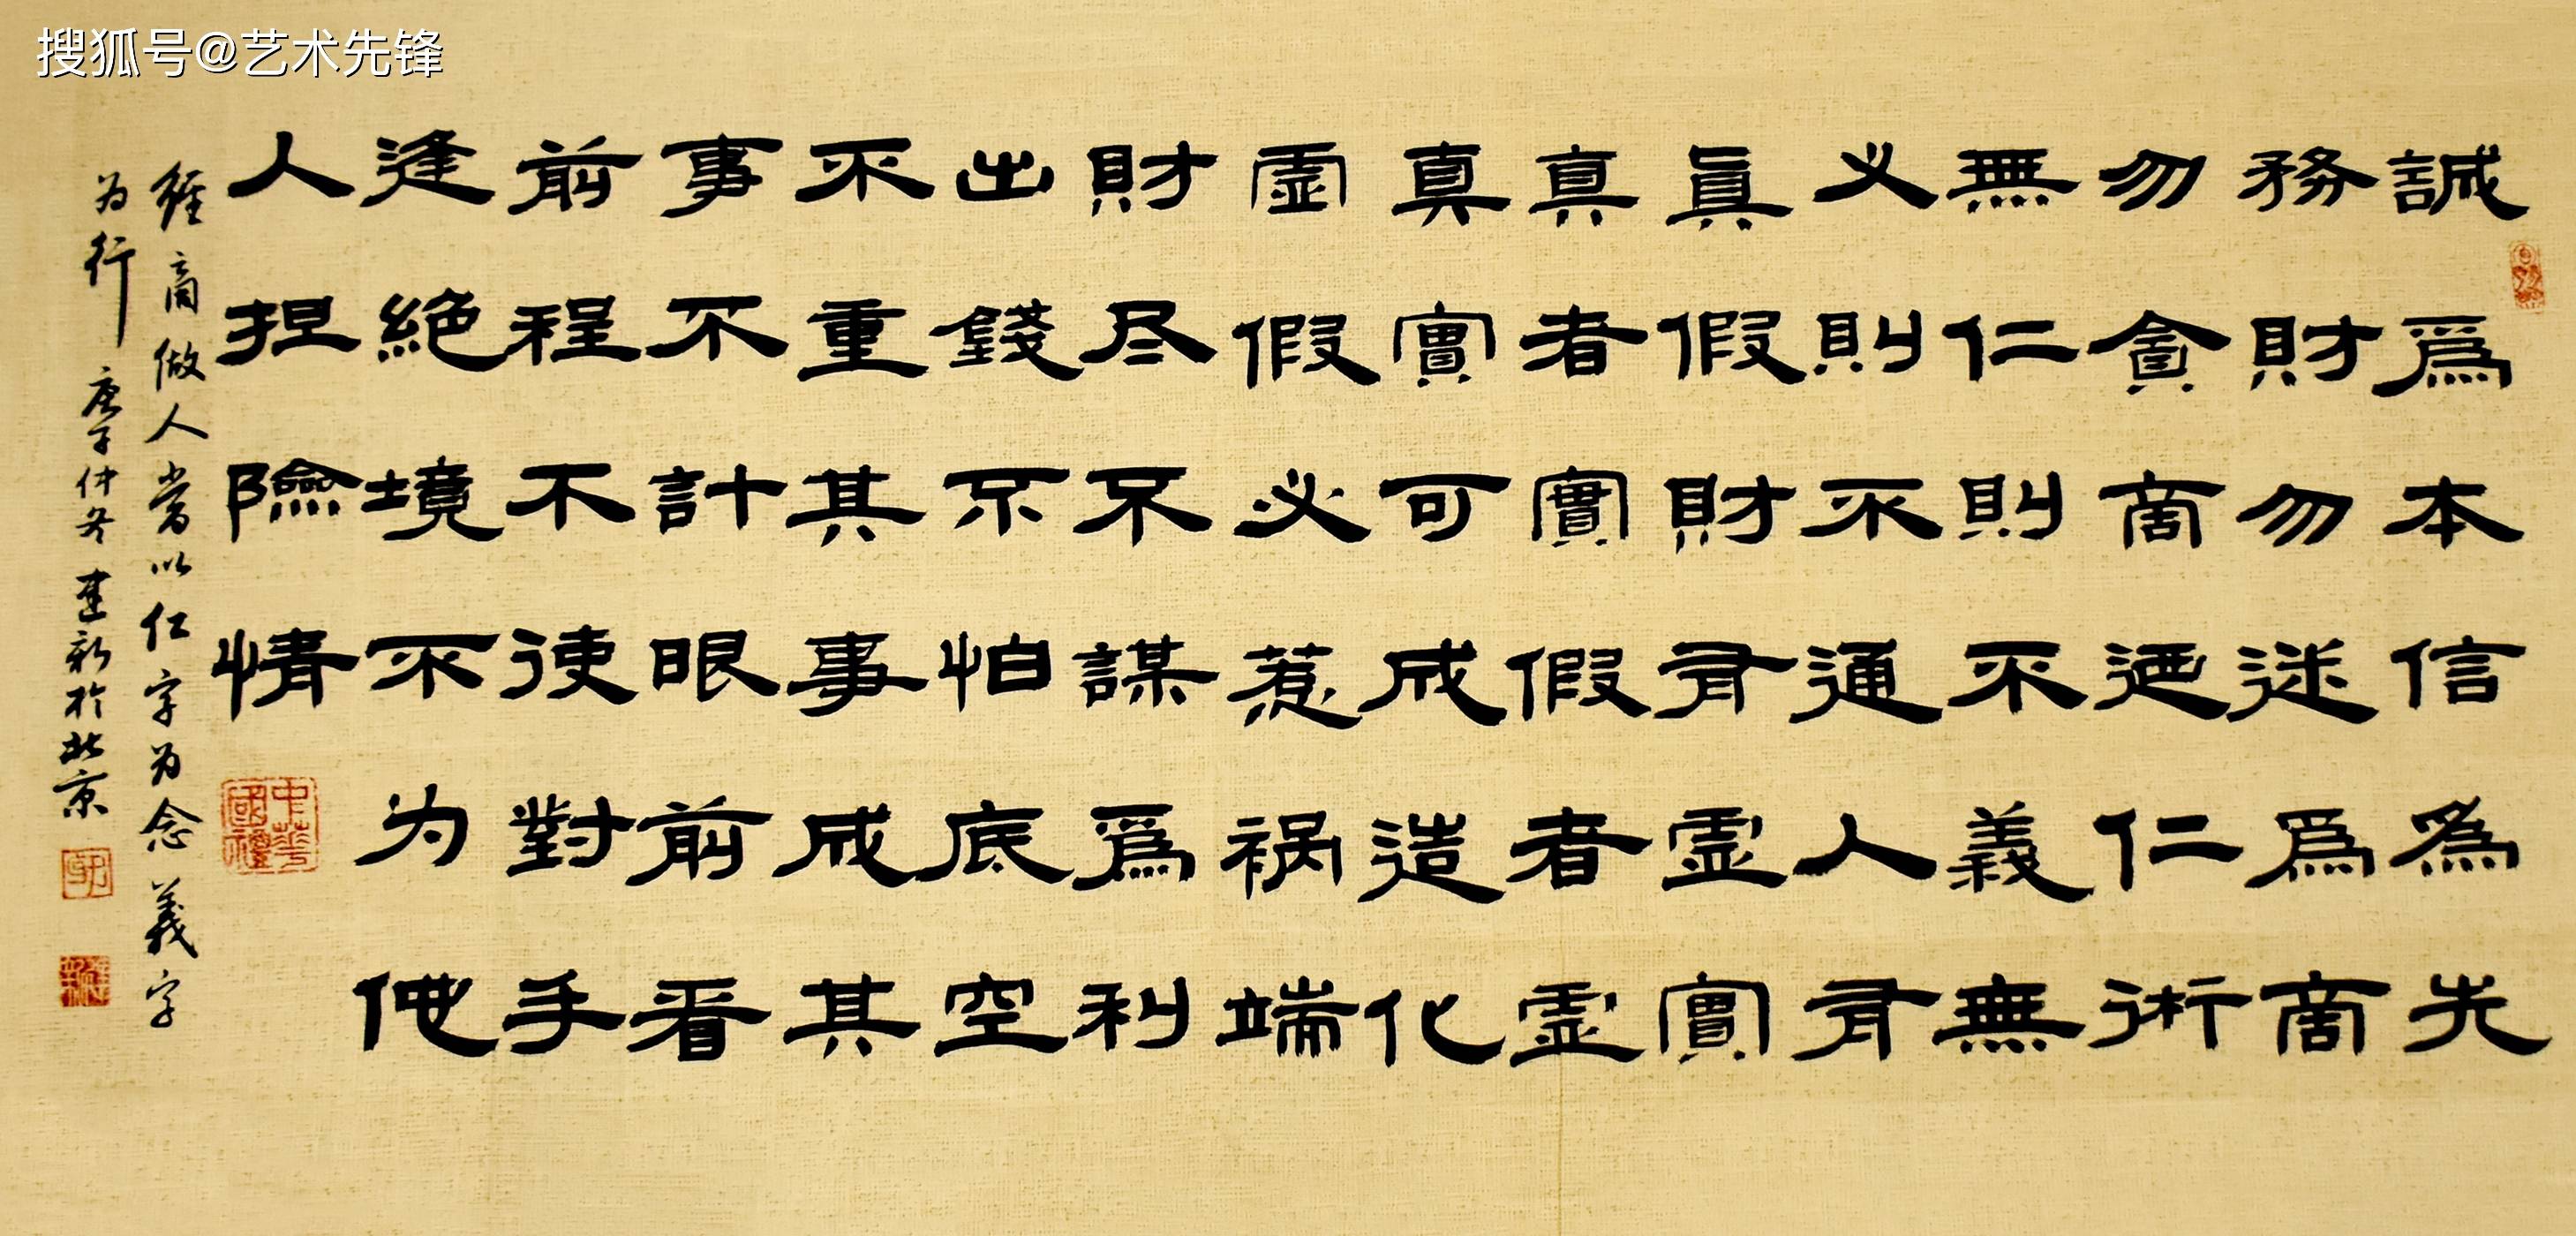 搜狐号@艺术先锋
誠爲本信為先
務財勿迷爲商
勿貪商迺仁術
無仁則不義無
义則不通人有
眞假財有虛實
真者實假者虛
真實可成造化
虛假必惹祸端
財尽不謀爲利
出錢不怕底空
不重其事成其
事不計眼前看
前程不使對手
逢絶境不为他
人担險情
中華國禮
經商做人當以仁字为念義字
为行 庚子仲冬 建新於北京